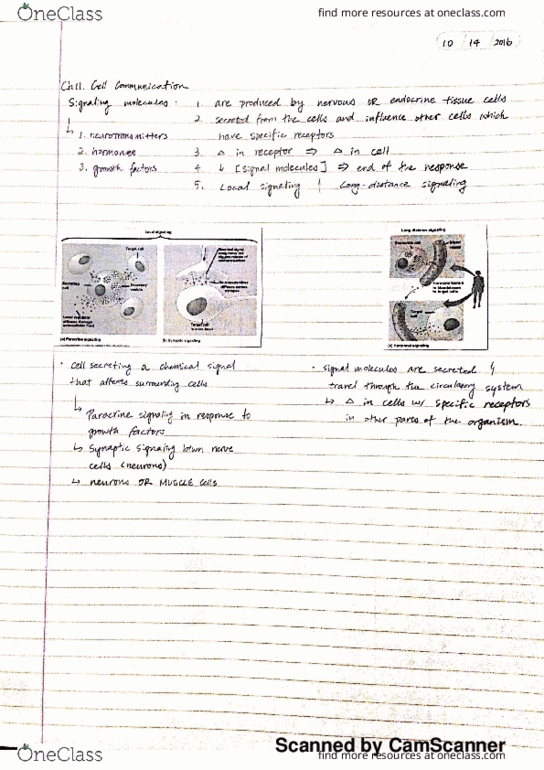 OneClass
find more resources at oneclass.com
10 / 14 / 2016
Ch11. Cell Communication
Signaling molecules: 1. are produced by nervous OR endocrine tissue cells
2. secreted from the cells and influence other cells which
↳ 1. neurotransmitters have specific receptors
2. hormones 3. Δ in receptor ⇒ Δ in cell
3. growth factors 4. ↓ [signal molecules] ⇒ end of the response
5. Local signaling | Long-distance signaling
Local signaling
Long-distance signaling
Target cell
Secreting cell
Secretory vesicle
Local regulator diffuses through extracellular fluid
(a) Paracrine signaling
Target cell
(b) Synaptic signaling
Blood vessel
(c) Hormonal signaling
· cell secreting a chemical signal
that affects surrounding cells
↳ Paracrine signaling in response to
growth factors
↳ Synaptic signaling btwn nerve
cells (neurons)
↳ neurons OR MUSCLE cells
· signal molecules are secreted &
travel through the circulatory system
↳ Δ in cells w/ specific receptors
in other parts of the organism.
Scanned by CamScanner
OneClass
find more resources at oneclass.com